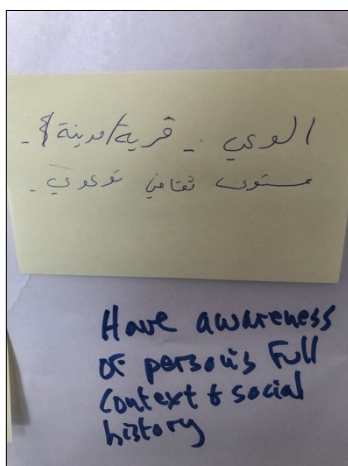 الوعي - قرية/مدينة -
مستوى ثقافي توعوي -
Have awareness
of person's Full
context & social
history